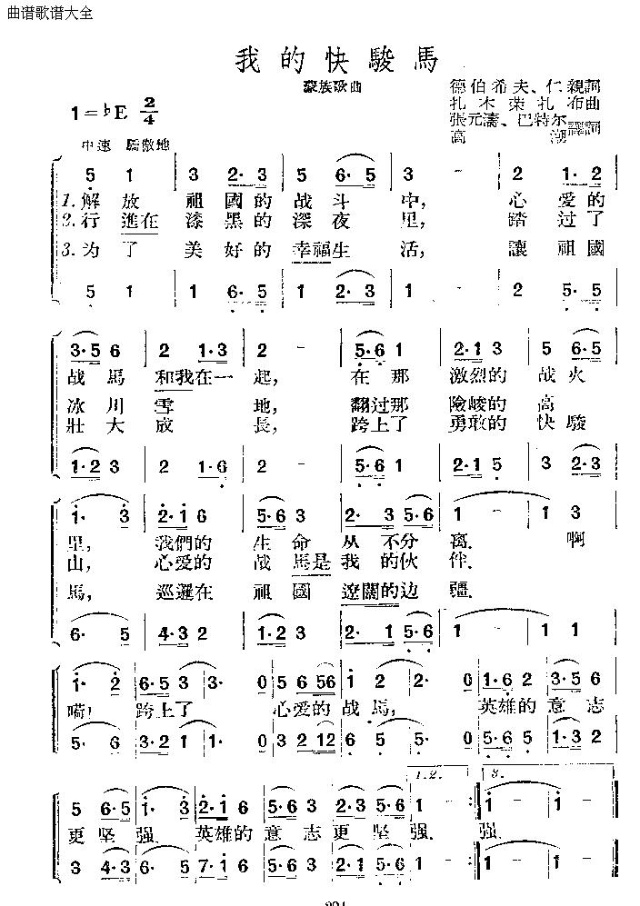 曲谱歌谱大全
我的快駿馬
蒙族歌曲
德伯希夫、仁親詞
扎木荣扎布曲
張元濤、巴特尔
高潮譯詞
1=♭E 2/4
中速 驕傲地
5 1 3 2·3 5 6·5 3 - 5 1·2
1.解放祖國的战斗中,心爱的
2.行進在漆黑的深夜里,踏过了
3.为了美好的幸福生活,讓祖國
5 1 1 6·5 1 2·3 1 - 2 5·5
3·5 6 2 1·3 2 - 5·6 1 2·1 3 5 6·5
战馬和我在一起,在那激烈的战火
冰川雪地,翻过那險峻的高
壯大成長,跨上了勇敢的快駿
1·2 3 2 1·6 2 - 5·6 1 2·1 5 3 2·3
1· 3 2·1 6 5·6 3 2· 3 5·6 1 - 1 3
里,我們的生命从不分离.啊
山,心爱的战馬是我的伙伴.
馬,巡邏在祖國遼闊的边疆.
6· 5 4·3 2 1·2 3 2· 1 5·6 1 - 1 1
1· 2 6·5 3 3· 0 5 6 56 1 2 2· 0 1·6 2 3·5 6
嗬!跨上了心爱的战馬,英雄的意志
5· 6 3·2 1 1· 0 3 2 12 6 5 5· 0 5·6 5 1·3 2
1.2. 3.
5 6·5 1· 3 2·1 6 5·6 3 2·3 5·6 1 - 1 - 1 -
更坚强.英雄的意志更坚强.强.
3 4·3 6· 5 7·1 6 5·6 3 2·1 5·6 1 - 1 - 1 -